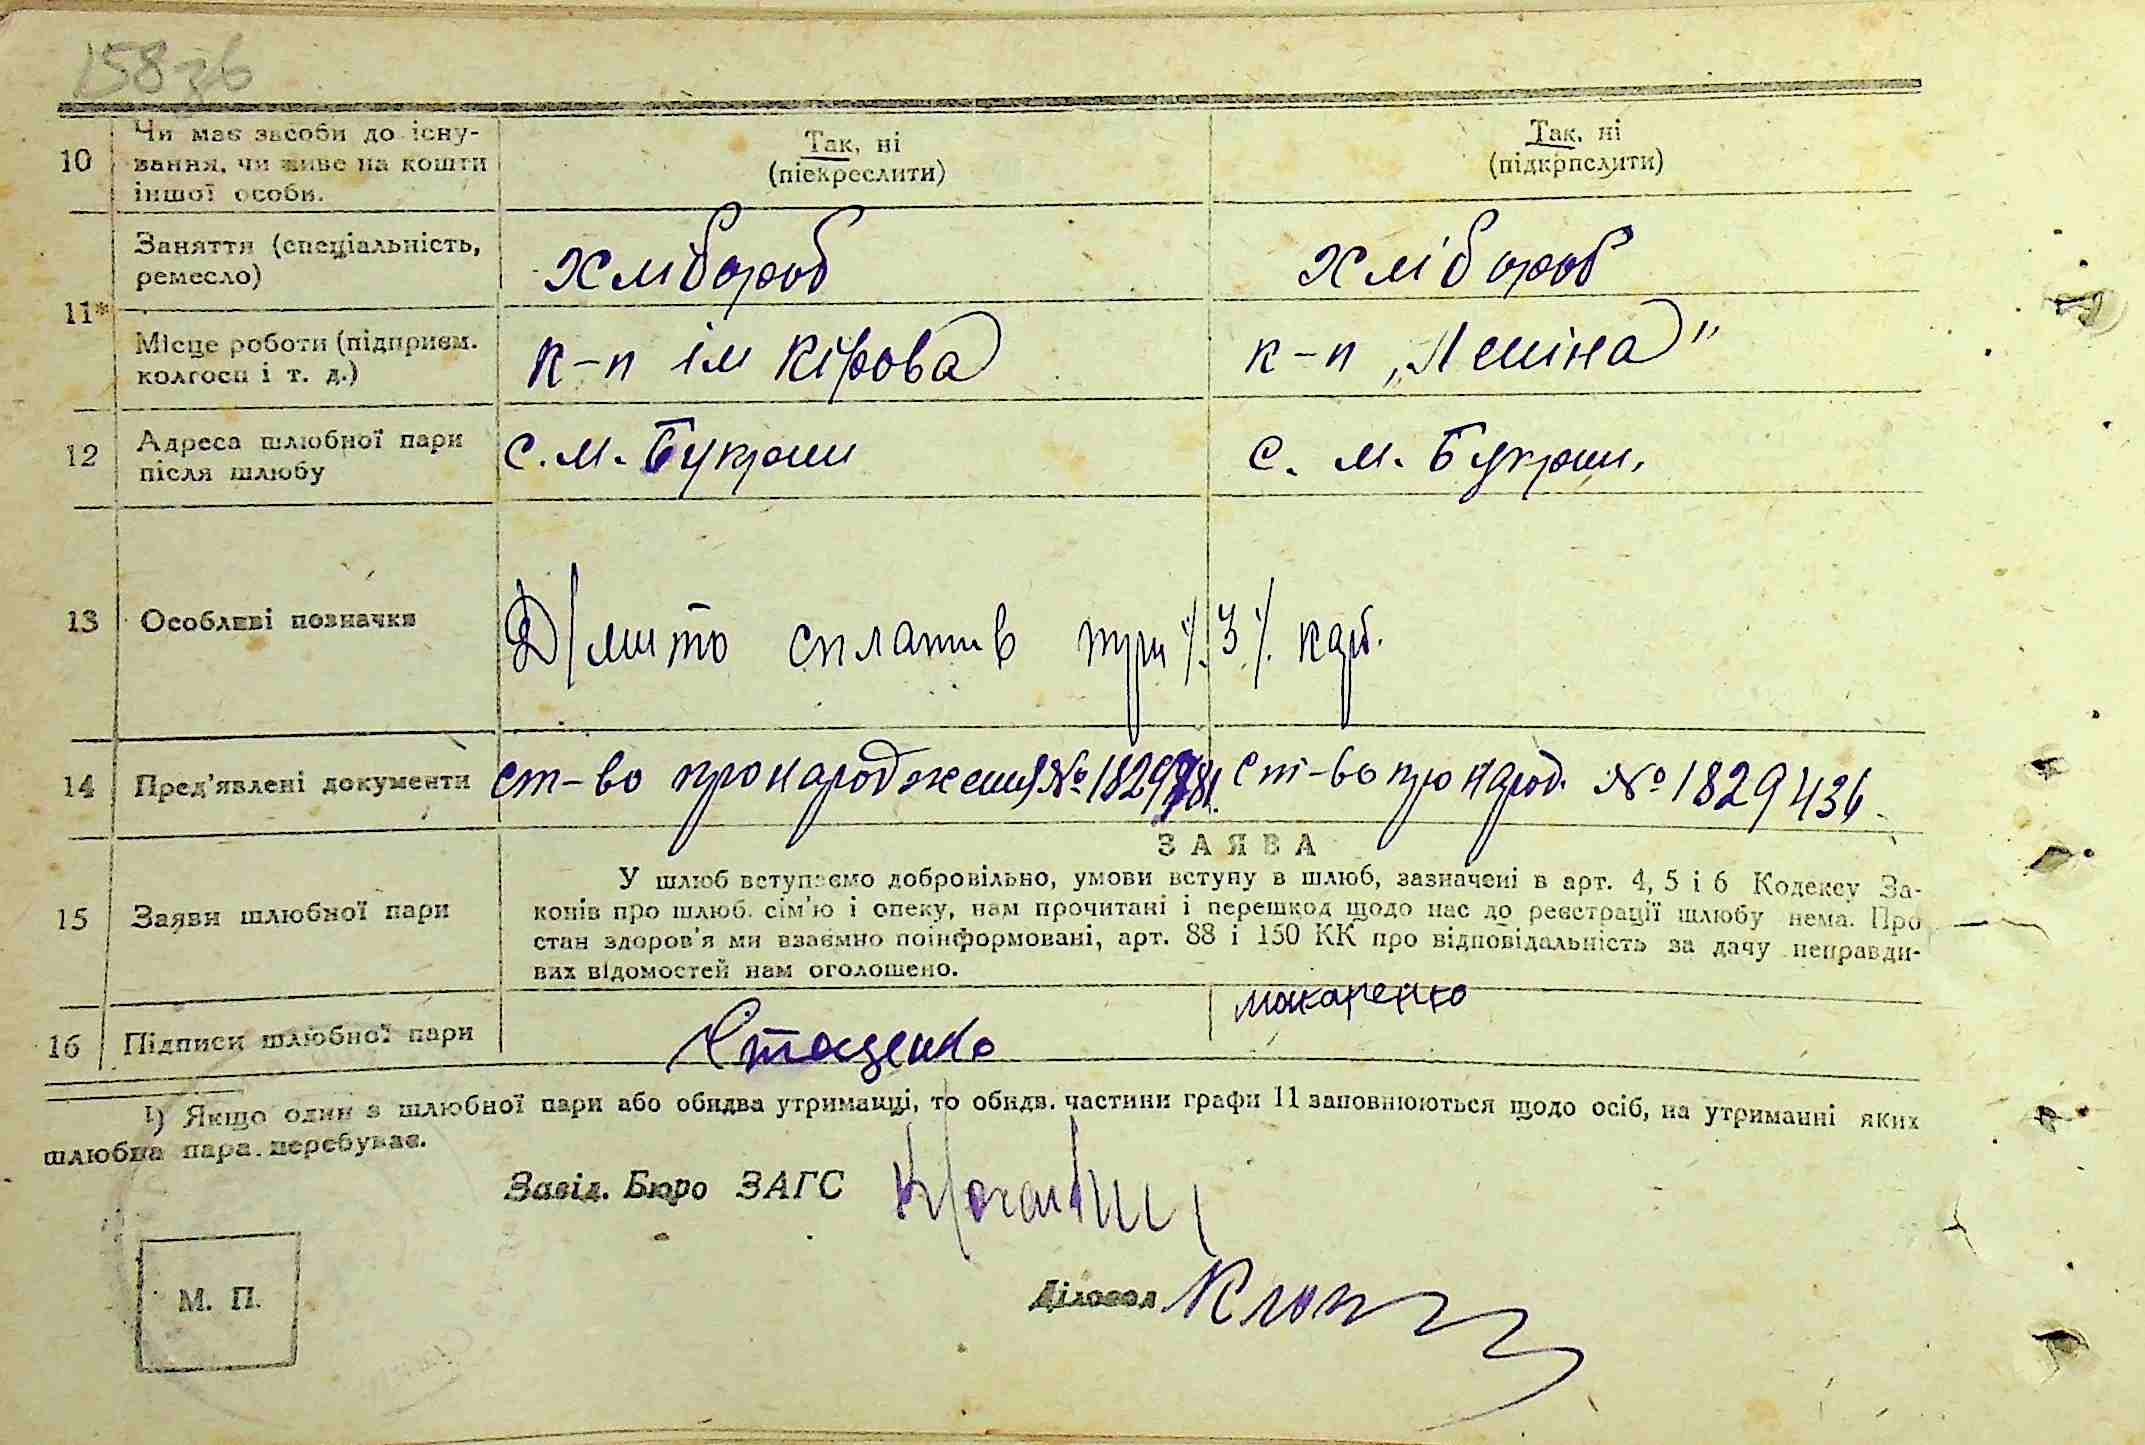 158зв
10 Чи має засоби до існу-
вання, чи живе на кошти
іншої особи.
Так, ні
(піекреслити)
Так, ні
(підкрпслити)
11*
Заняття (спеціальність,
ремесло)
Хлібороб
Хлібороб
Місце роботи (підприєм.
колгосп і т. д.)
к-п ім Кірова
к-п „Леніна"
12 Адреса шлюбної пари
після шлюбу
с. М. Букрин
с. М. Букрин.
13 Особливі позначки
Д/мито сплатив три /.3/. карб.
14 Пред'явлені документи
ст-во про народження №
ст-во про народ. № 1829436
ЗАЯВА
15 Заяви шлюбної пари
У шлюб вступаємо добровільно, умови вступу в шлюб, зазначені в арт. 4, 5 і 6 Кодексу За-
конів про шлюб. сім'ю і опеку, нам прочитані і перешкод щодо нас до реєстрації шлюбу нема. Про
стан здоров'я ми взаємно поінформовані, арт. 88 і 150 КК про відповідальність за дачу неправди-
вих відомостей нам оголошено.
16 Підписи шлюбної пари
Стаценко
макаренко
¹) Якщо один з шлюбної пари або обидва утриманці, то обидв. частини графи 11 заповнюються щодо осіб, на утриманні яких
шлюбна пара перебуває.
Завід. Бюро ЗАГС
Діловод
М. П.